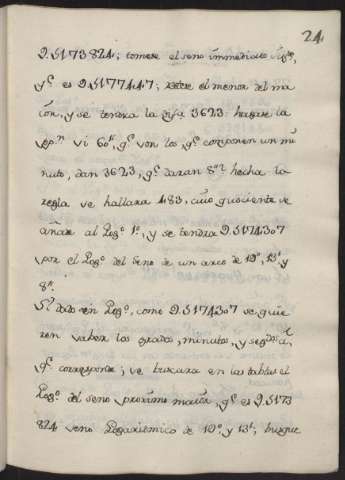 24
9.5173824; tomese el seno immediato sig.te,
q.e es 9.5177447; restese el menor del ma
ior, y se tendra la difa 3623 hagase la
pp.n si 60'', q.e son los q.e componen un mi
nuto, dan 3623; q.e daran 8''? hecha la
regla se hallara 483, cuio quociente se
añade al Log.o 1.o, y se tendra 9.5174307
por el Log.o del Seno de un arco de 19.o, 13', y
8''.
El dado en Log.o, como 9.5174307 se quie
ren saber los grados, minutos, y seg.dos á
q.e corresponde; se buscara en las tablas el
Log.o del seno proximo menor, q.e es 9.5173
824 seno Logaritmico de 19.o, y 13'; busque